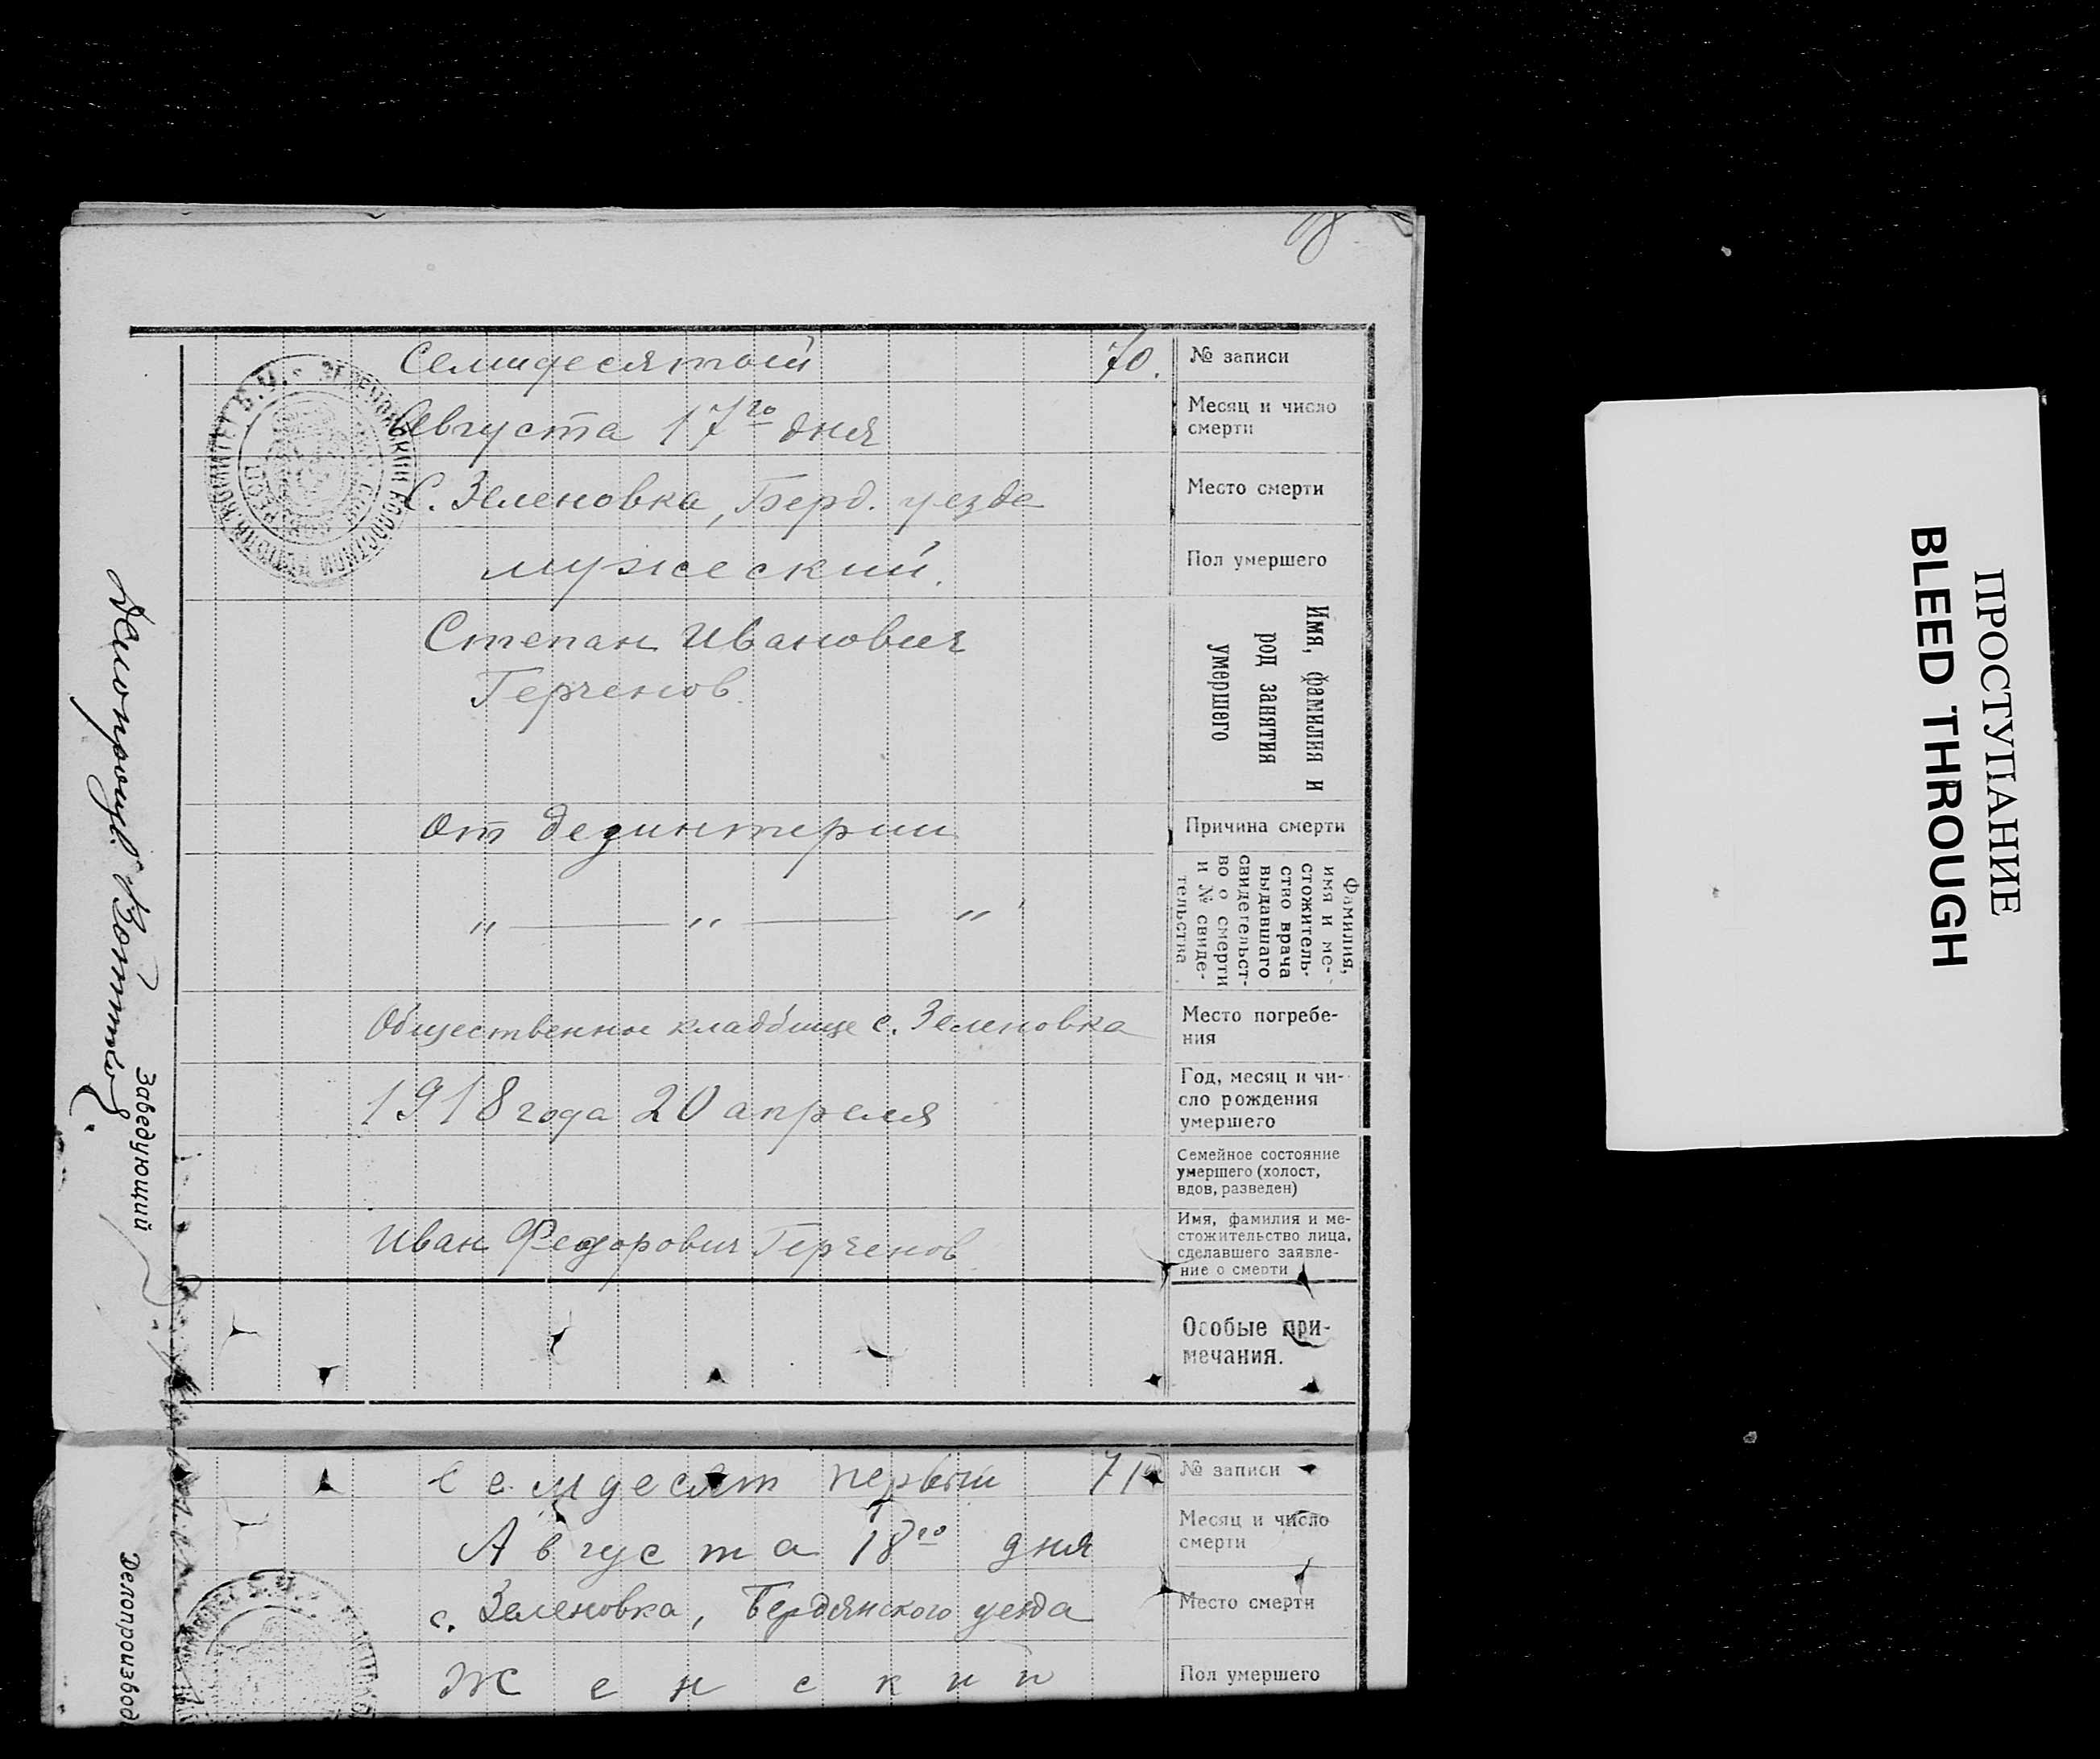 № записи
Семидесятый 70.
Месяц и число
смерти
Августа 17го дня
Место смерти
С. Зеленовка, Берд. уезда
Пол умершего
мужеский.
Имя, фамилия и
род занятия
умершего
Степан Иванович
Герченов.
Причина смерти
От дезинтерии
Фамилия,
имя и ме-
стожитель-
ство врача
выдавшаго
свидетельст-
во о смерти
и № свиде-
тельства
" — " — "
Место погребе-
ния
Общественное кладбище с. Зеленовка
Год, месяц и чи-
сло рождения
умершего
1918 года 20 апреля
Семейное состояние
умершего (холост,
вдов, разведен)
Имя, фамилия и ме-
стожительство лица,
сделавшего заявле-
ние о смерти
Иван Федорович Герченов
Особые при-
мечания.
Заведующий
Делопроизв.
№ записи
Семдесят первый 71
Месяц и число
смерти
Августа 18го дня
Место смерти
с. Зеленовка, Бердянского уезда
Пол умершего
Женский
Делопроизвод
ПРОСТУПАНИЕ
BLEED THROUGH